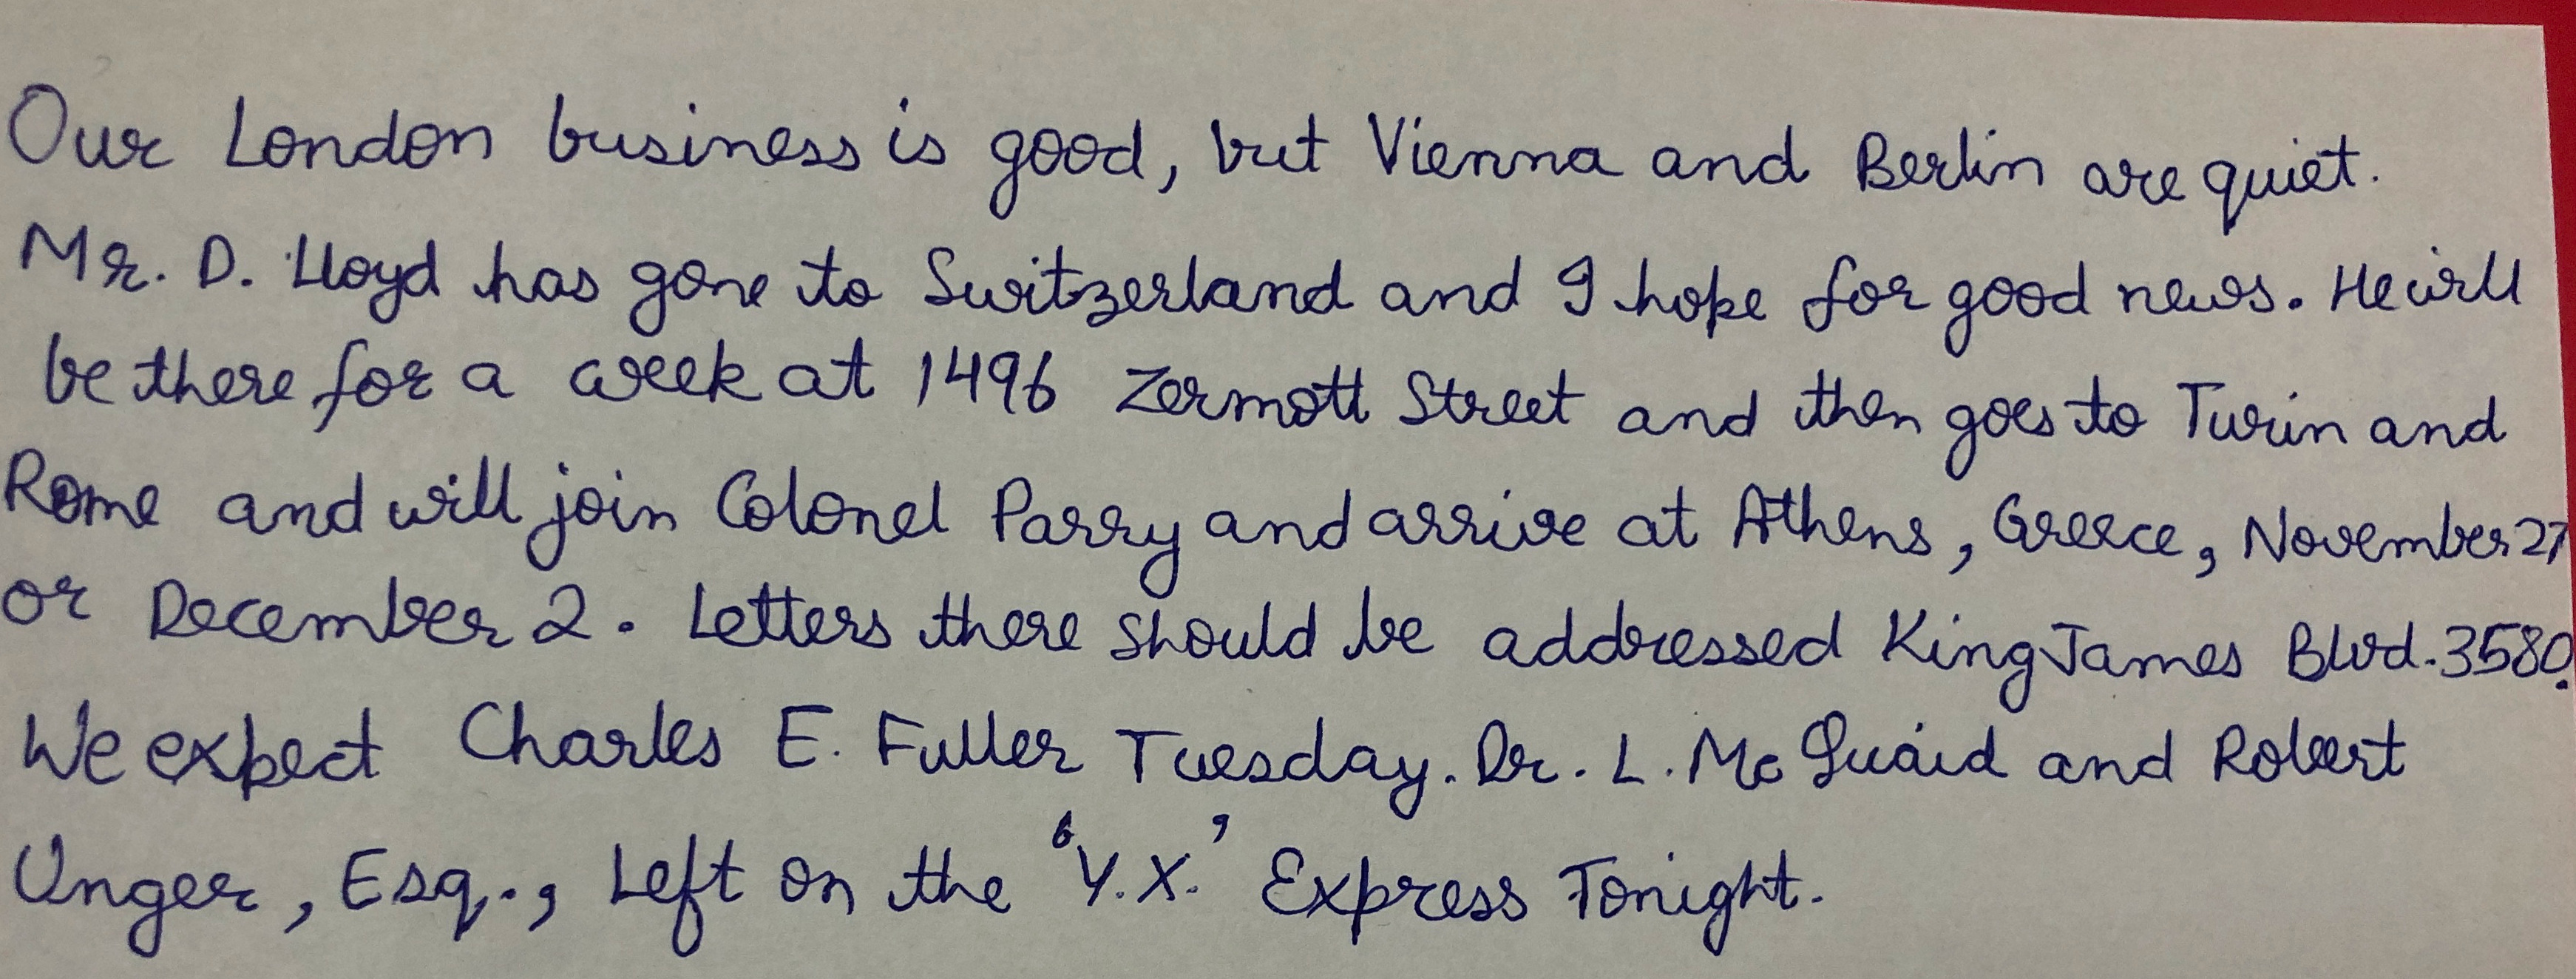 Our London business is good, but Vienna and Berlin are quiet.
Mr. D. Lloyd has gone to Switzerland and I hope for good news. He will
be there for a week at 1496 Zermott Street and then goes to Turin and
Rome and will join Colonel Parry and arrive at Athens, Greece, November 27
or December 2. Letters there should be addressed King James Blvd. 3580.
We expect Charles E. Fuller Tuesday. Dr. L. Mc Quaid and Robert
Unger, Esq., Left on the 'Y.X.' Express Tonight.